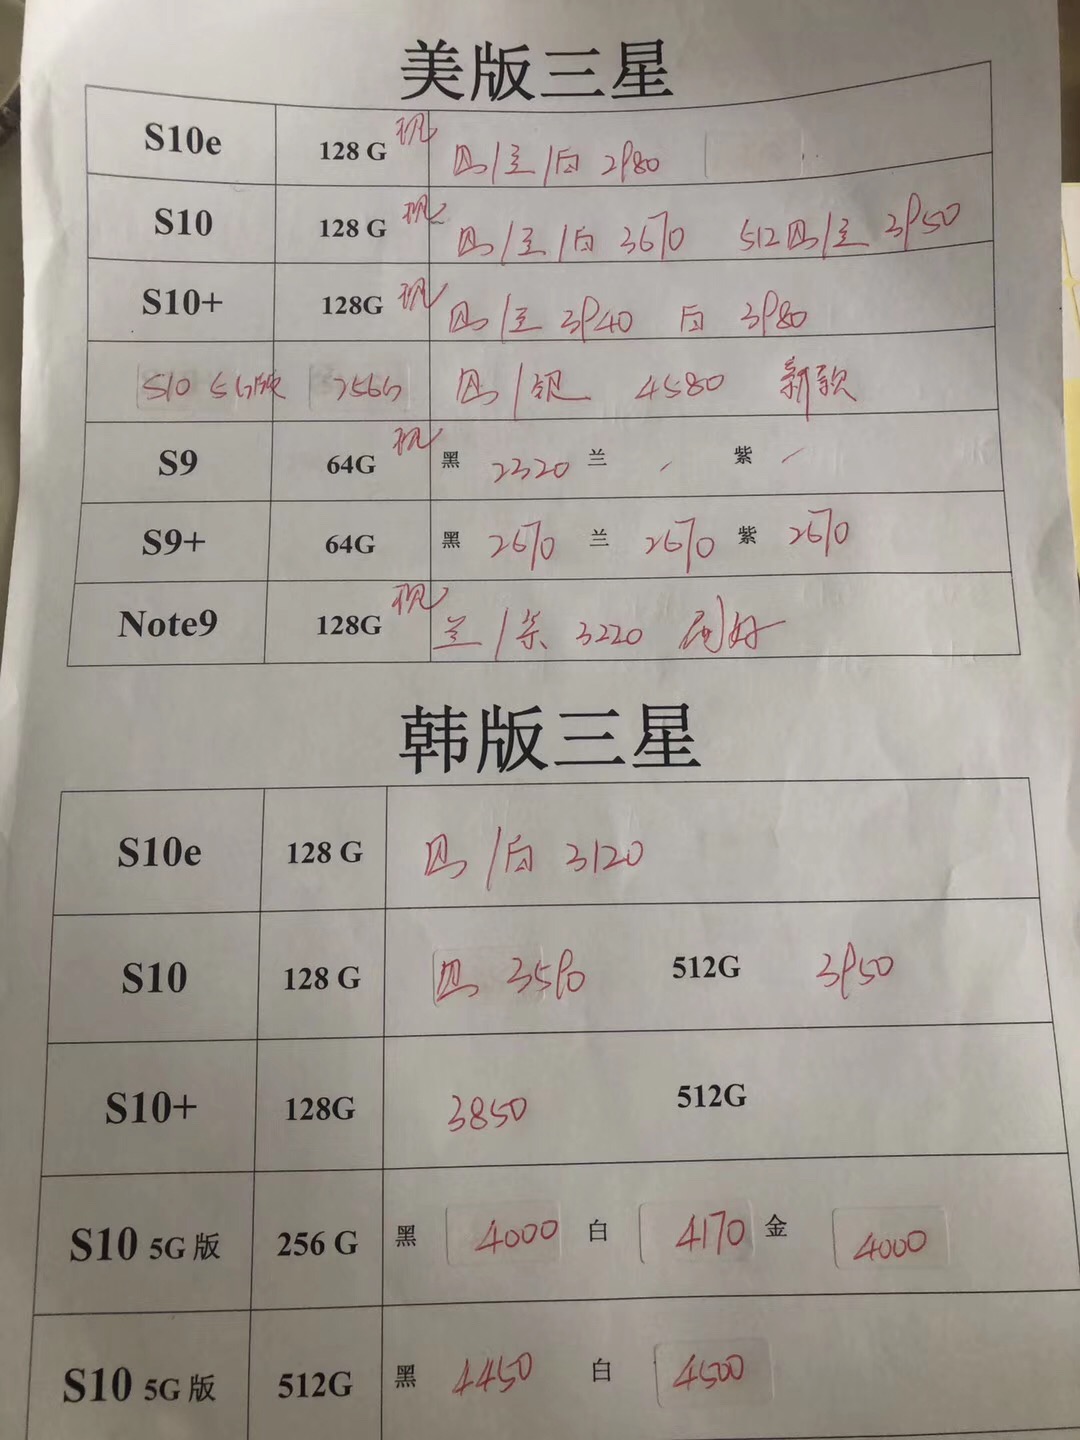 美版三星
S10e 128 G 现 黑/兰/白 2980
S10 128 G 现 黑/兰/白 3670 512黑/兰 3950
S10+ 128G 现 黑/兰 3940 白 3980
S10 5G版 256G 黑/银 4580 新款
S9 64G 现 黑 2320 兰 / 紫 /
S9+ 64G 黑 2670 兰 2670 紫 2670
Note9 128G 现 兰/紫 3220 刷好
韩版三星
S10e 128 G 黑/白 3120
S10 128 G 黑 3590 512G 3950
S10+ 128G 3850 512G
S10 5G版 256 G 黑 4000 白 4170 金 4000
S10 5G版 512G 黑 4450 白 4500